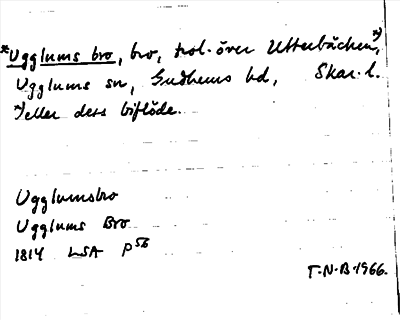 *Ugglums bro, bro, trol. över Utterbäcken, *)
Ugglums sn, Gudhems hd, Skar. l.
*) eller dess biflöde.
Ugglumsbro
Ugglums Bro
1814 LSA P56
T.N.B. 1966.